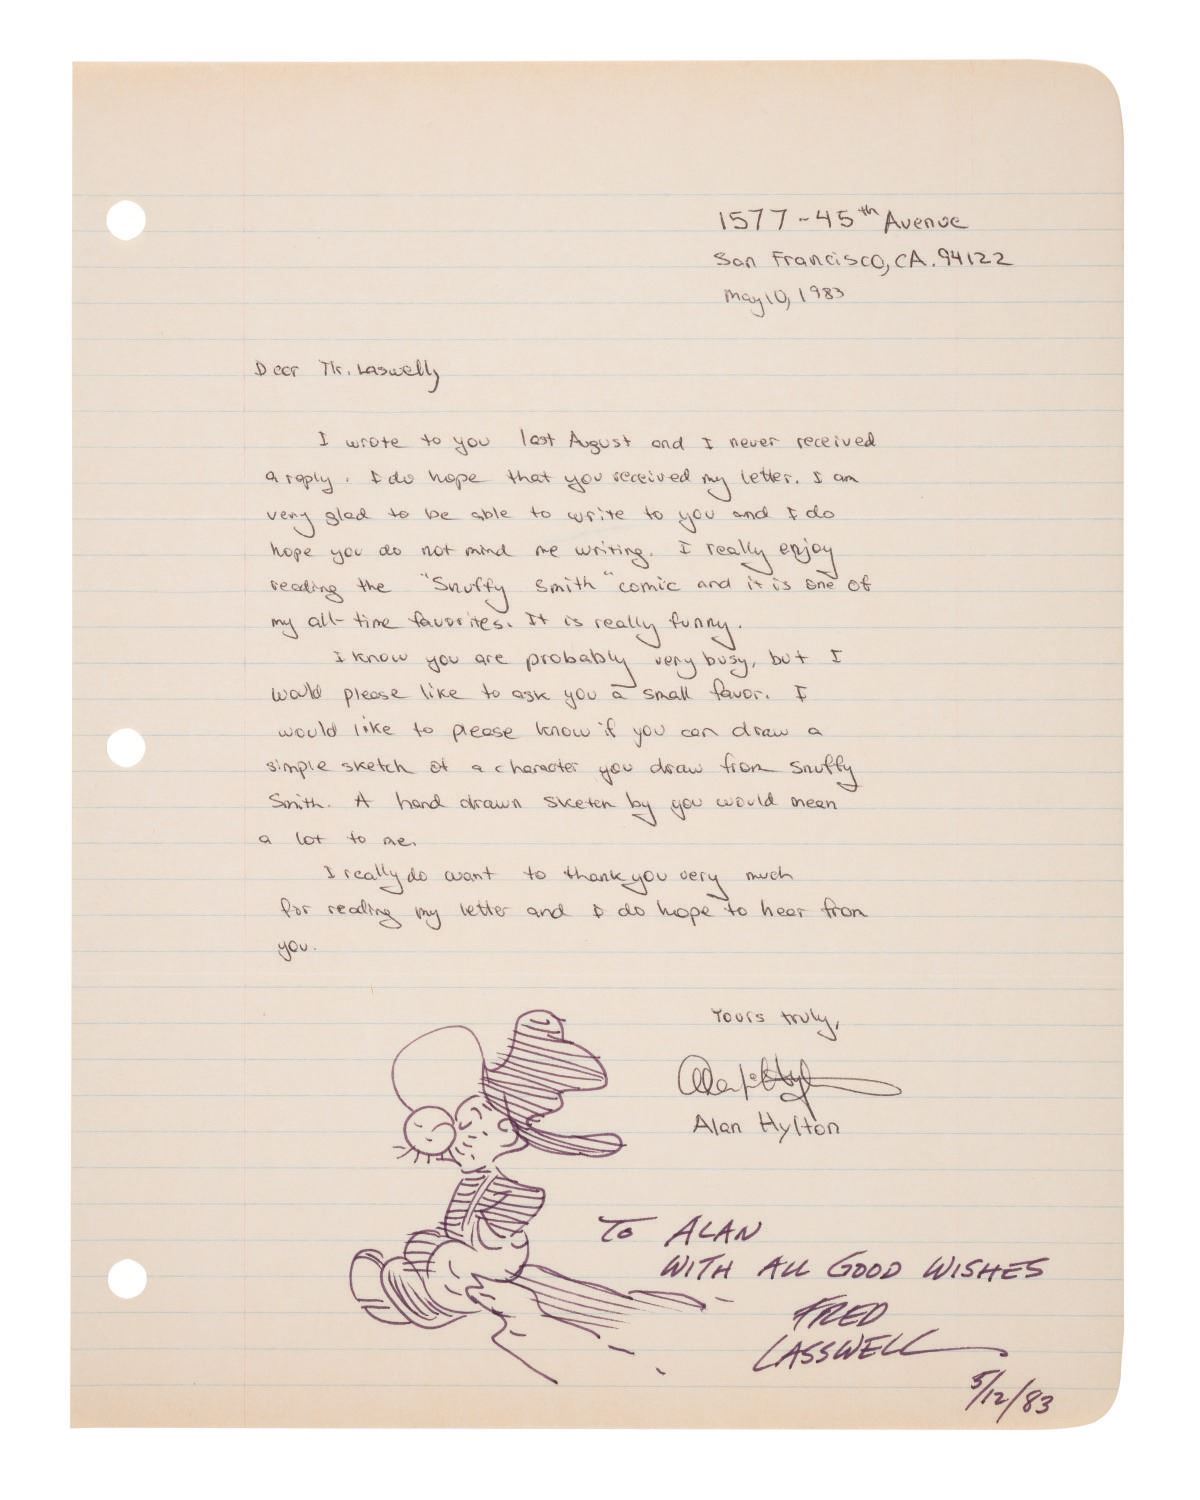 1577-45th Avenue
San Francisco, CA. 94122
May 10, 1983
Dear Mr. Laswell,
I wrote to you last August and I never received
a reply. I do hope that you received my letter. I am
very glad to be able to write to you and I do
hope you do not mind me writing. I really enjoy
reading the "Snuffy Smith" comic and it is one of
my all-time favorites. It is really funny.
I know you are probably very busy, but I
would please like to ask you a small favor. I
would like to please know if you can draw a
simple sketch of a character you draw from Snuffy
Smith. A hand drawn sketch by you would mean
a lot to me.
I really do want to thank you very much
for reading my letter and I do hope to hear from
you.
Yours truly,
Alan Hylton
TO ALAN
WITH ALL GOOD WISHES
FRED
LASSWELL
5/12/83